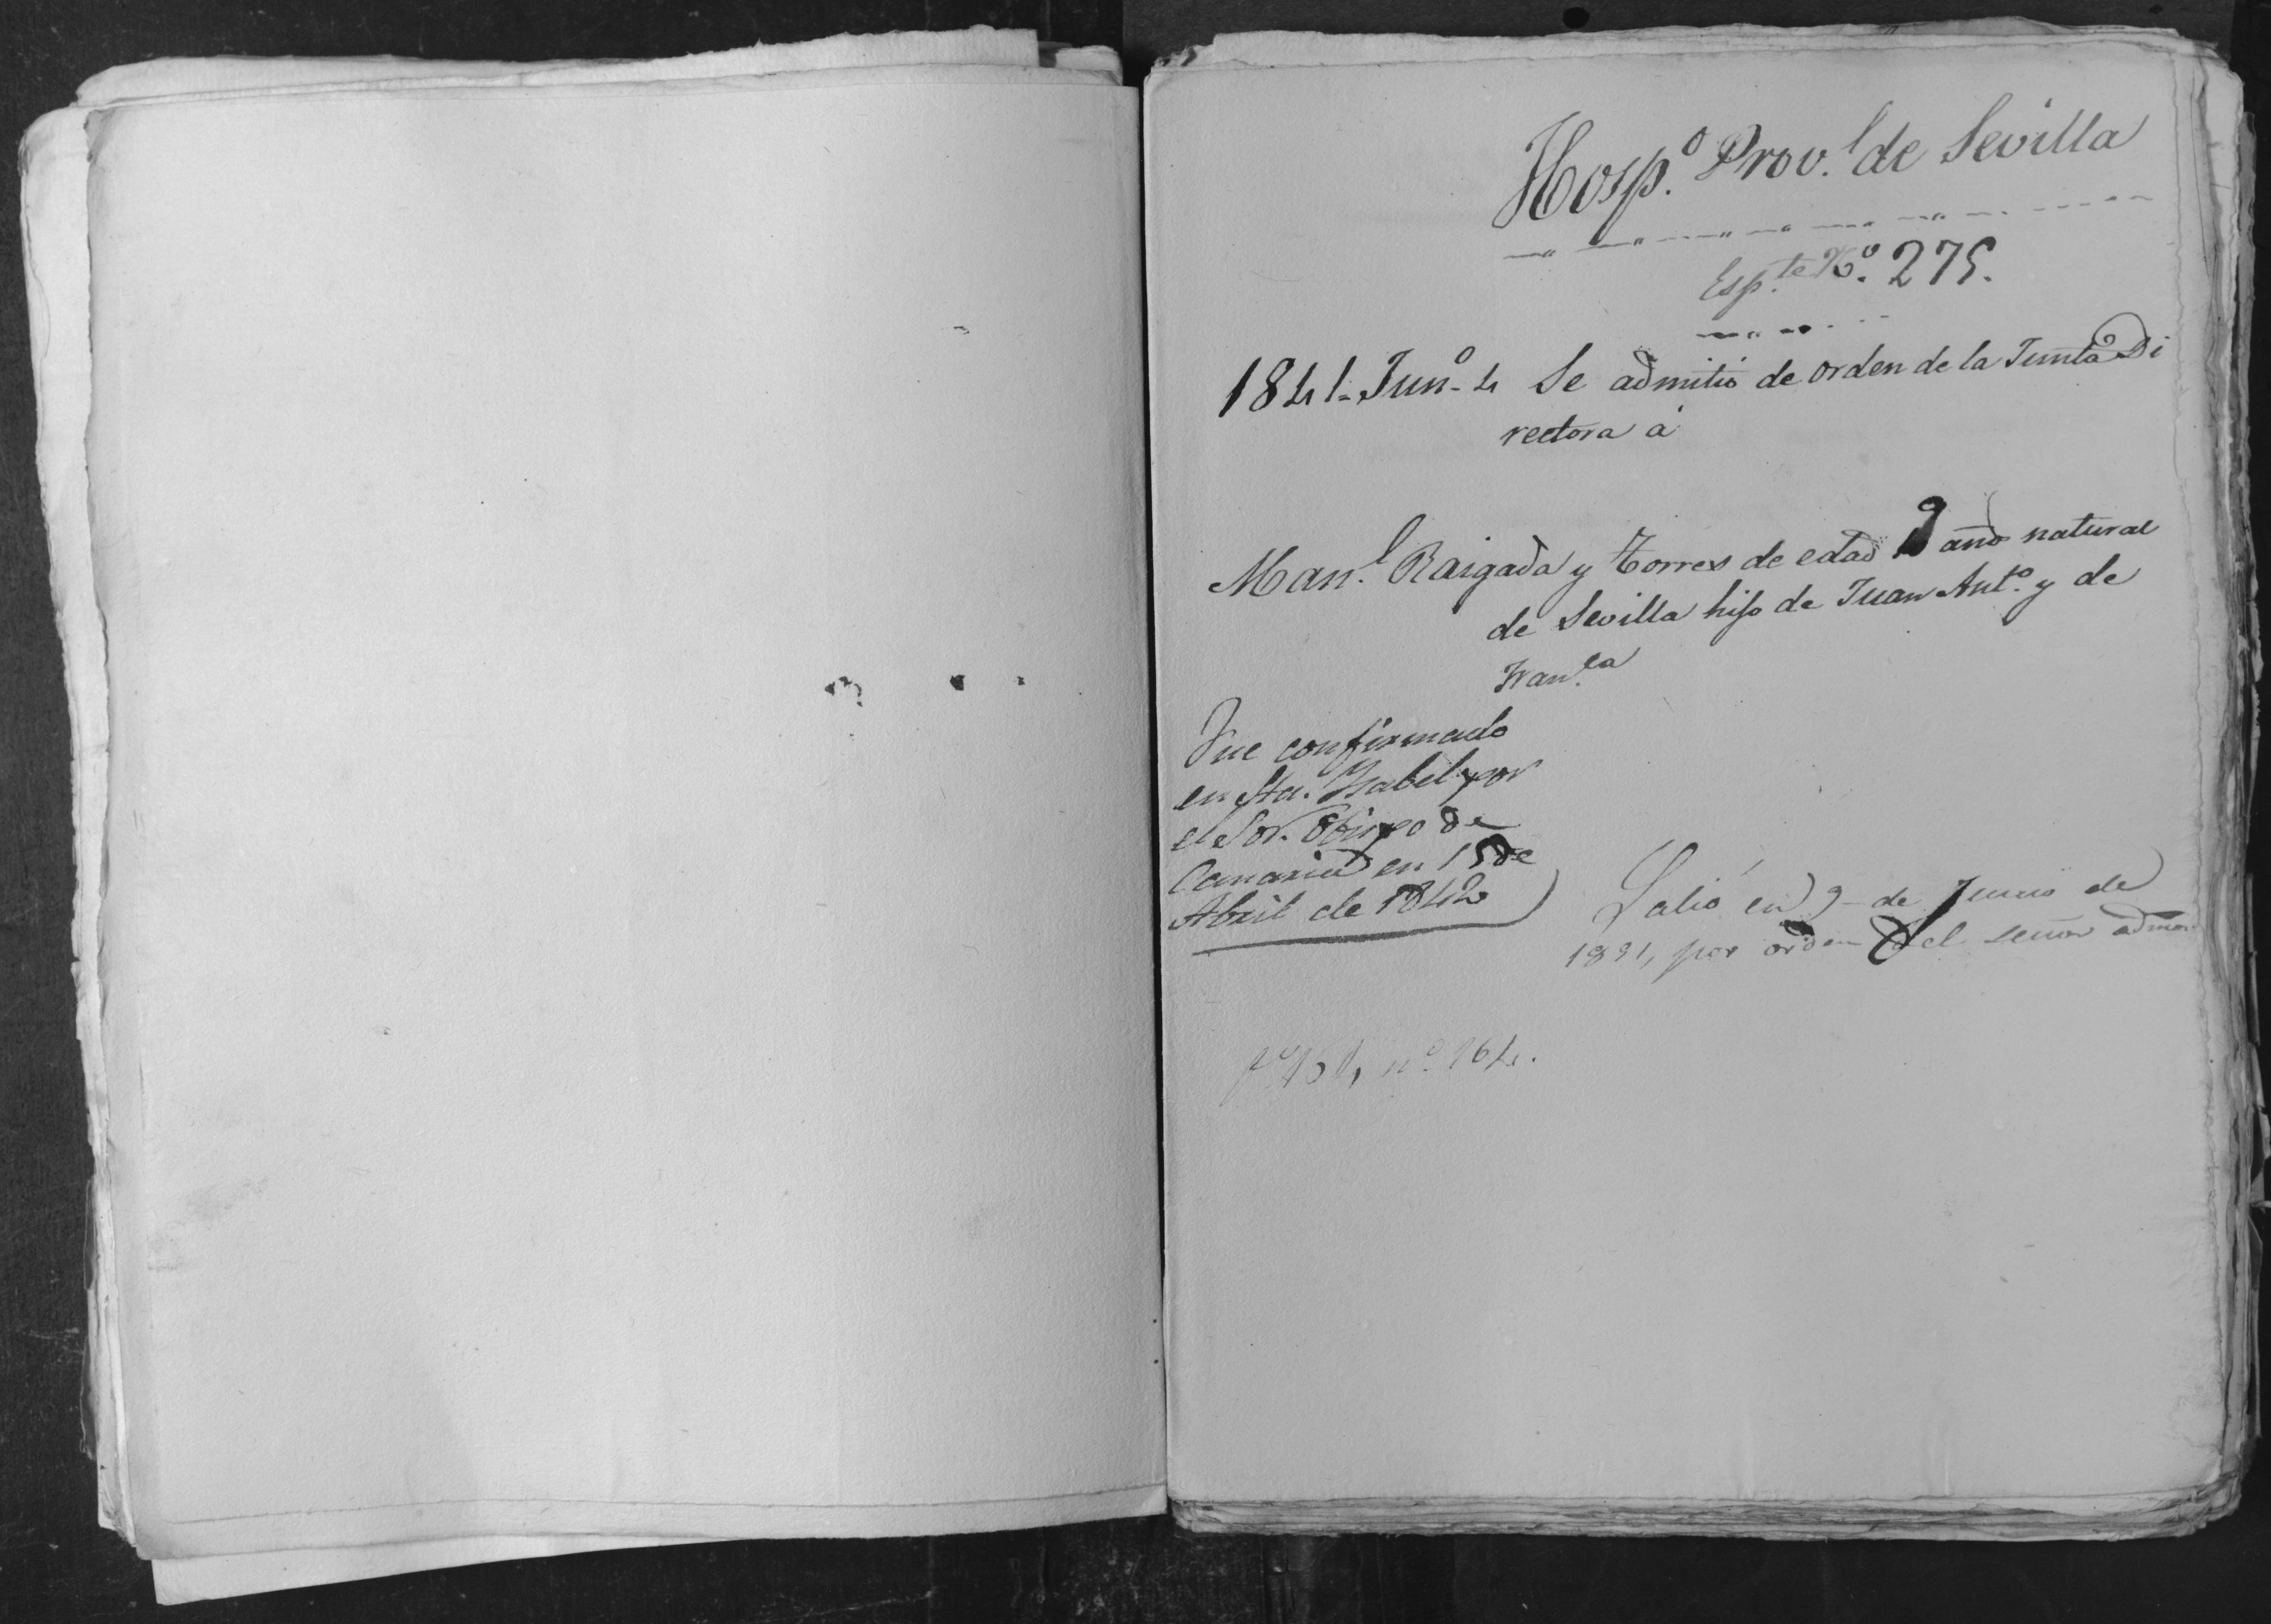 Hosp.º Prov.l de Sevilla
Esp.te Nº. 275.
1841-Junº-4 Se admitió de orden de la Junta Di
rectora á
Man.l Raigada y Torres de edad 9 año natural
de Sevilla hijo de Juan Antº. y de
Fran.ca
Fue confirmado
en Sta. Ysabel por
el Sor. Obispo de
Canarias en 15 de
Abril de 1842
Salió en 9 de Junio de
1851, por orden del señor admor
nº 164.